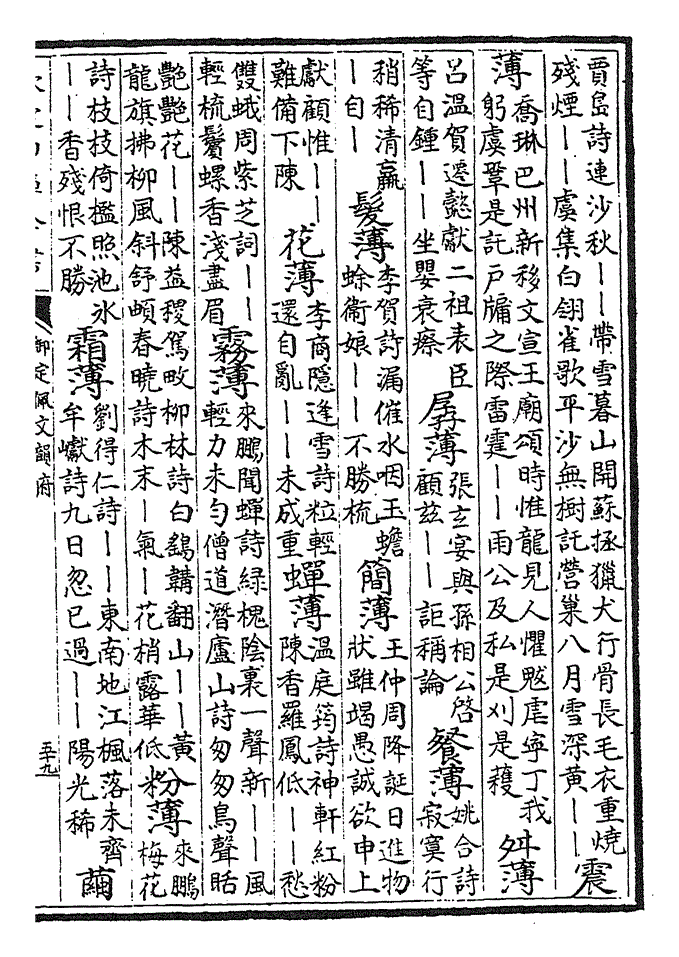 賈島詩連沙秋——帶雪暮山開蘇拯獵犬行骨長毛衣重燒
殘煙——虞集白翎雀歌平沙無樹託營巢八月雪深黄——
震
薄
喬琳巴州新移文宣王廟頌時惟龍見人懼魃虐寧丁我
躬虔鞏是託戸牖之際雷霆——雨公及私是刈是穫
舛薄
吕温賀遷懿獻二祖表臣
等自鍾——坐嬰衰瘵
孱薄
張玄宴與孫相公啓
顧兹——詎稱論
餐薄
姚合詩
寂寞行
稍稀清羸
—自—
髮薄
李賀詩漏催水咽玉蟾
蜍衞娘——不勝梳
簡薄
王仲周降誕日進物
狀雖竭愚誠欲申上
獻顧惟——
難備下陳
花薄
李商隱逢雪詩粒輕
還自亂——未成重
蟬薄
温庭筠詩神軒紅粉
陳香羅鳳低——愁
雙蛾周紫芝詞——
輕梳鬢螺香淺盡眉
霧薄
來鵬聞蟬詩緑槐陰裏一聲新——風
輕力未匀僧道潛廬山詩匆匆鳥聲眊
艷艷花——陳益稷駕畋柳林詩白鷂韝翻山——黄
龍旗拂柳風斜舒頔春曉詩木末—氣—花梢露華低
粉薄
來鵬
梅花
詩枝枝倚檻照池氷
——香殘恨不勝
霜薄
劉得仁詩——東南地江楓落未齊
牟巘詩九日忽已過——陽光稀
繭
御定佩文韻府
五十九